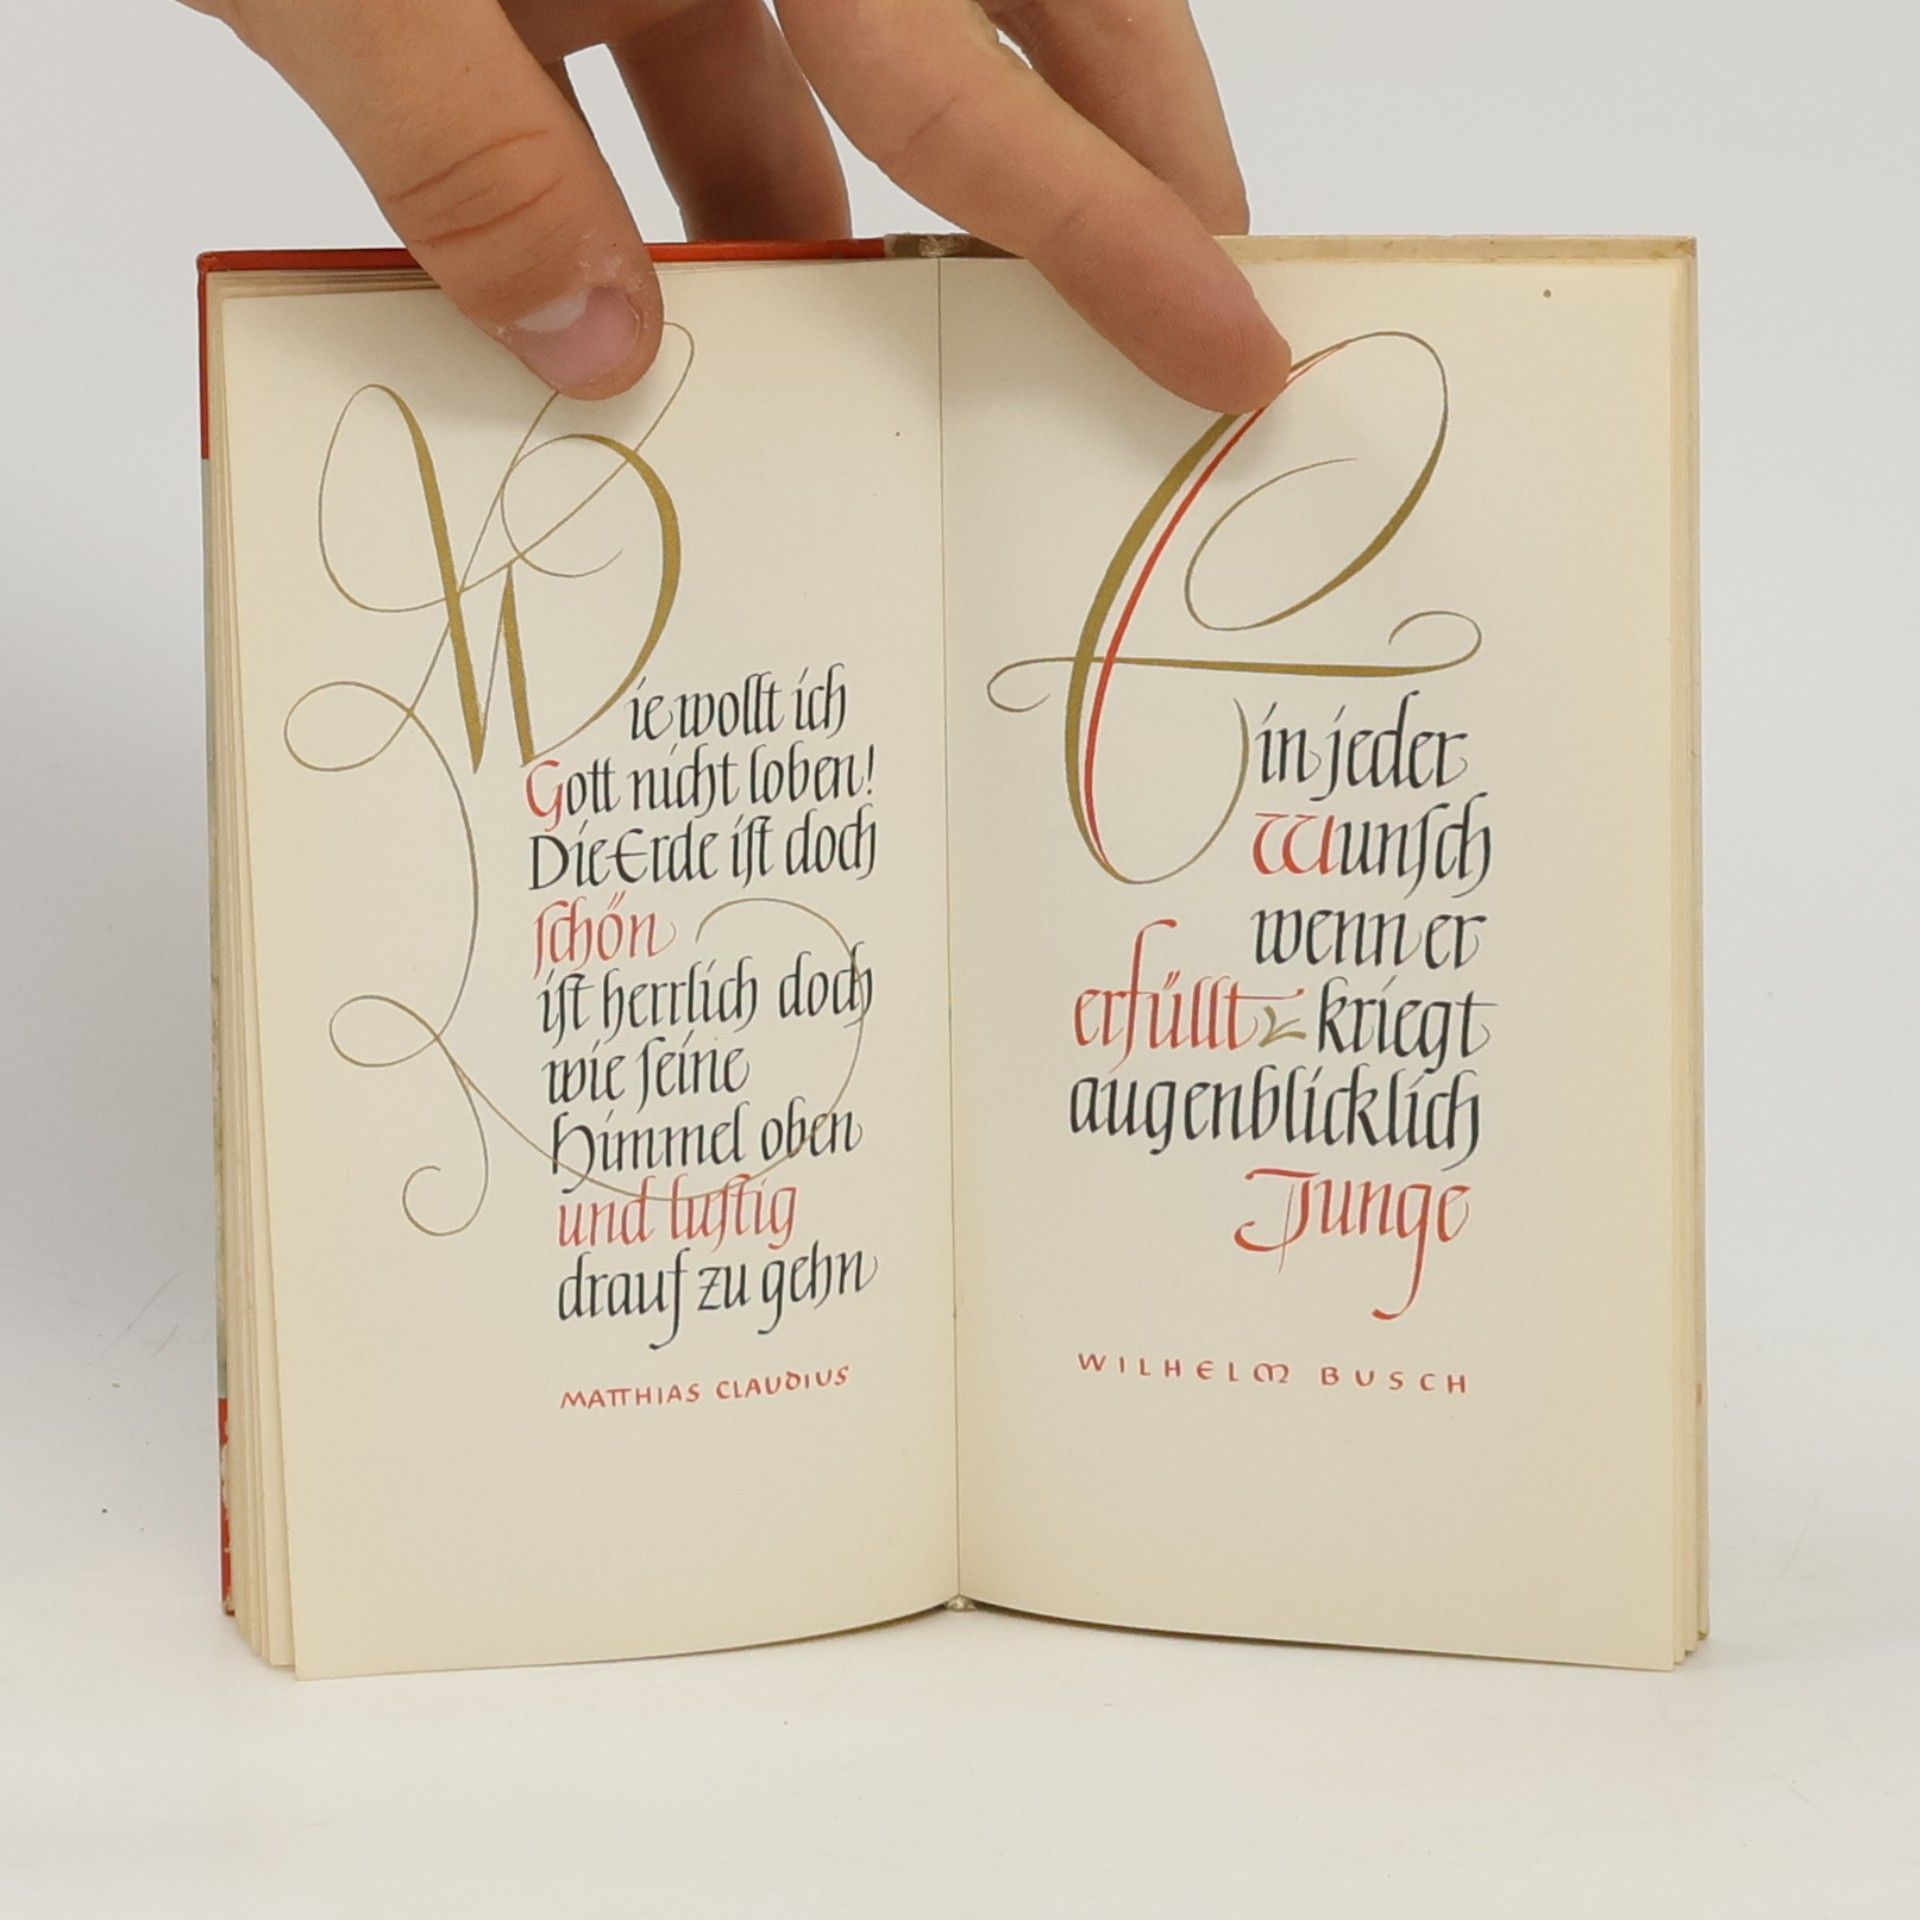 Wie wollt ich
Gott nicht loben!
Die Erde ist doch
schön
ist herrlich doch
wie seine
Himmel oben
und lustig
drauf zu gehn
MATTHIAS CLAUDIUS
Ein jeder
Wunsch
wenn er
erfüllt kriegt
augenblicklich
Junge
WILHELM BUSCH